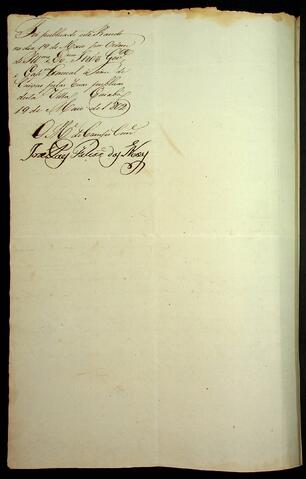 Foi publicado este Bando
no dia 19 de Maio por Ordem
do Illmo e Exmo Snr Gov
e Cap General a som de
Caixas pelas Ruas publicas
desta Villa Cuiabá
19 de Maio de 18
O M.e de Campo Com
José Paes Falcão das Neves